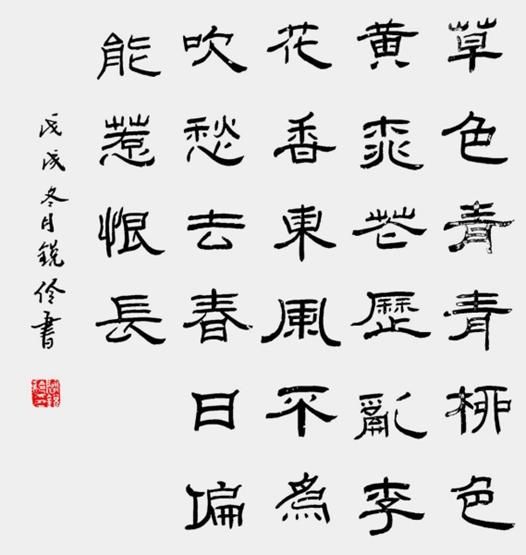 草色青青柳色
黄桃花歷亂李
花香東風不為
吹愁去春日偏
能惹恨長
戊戌冬月銳伶書